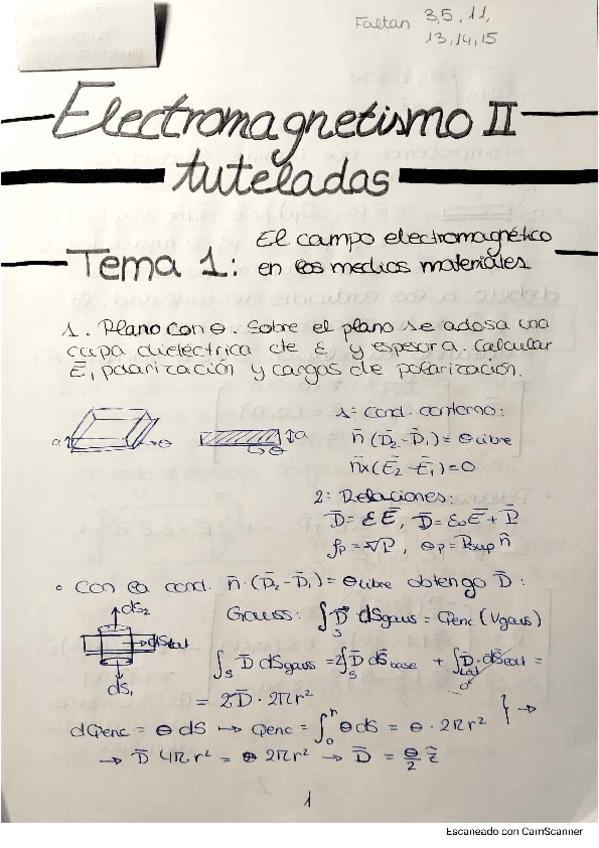 Faltan 3,5, 11,
13, 14, 15
Electromagnetismo II
tuteladas
Tema 1: El campo electromagnético
en los medios materiales
1. Plano con θ. Sobre el plano se adosa una
capa dieléctrica cte ε y espesor a. Calcular
E̅, polarización y cargas de polarización.
a θ
a
θ
1: cond. contorno:
n̅ (D̅₂-D̅₁) = θ libre
n̅x(E̅₂-E̅₁)=0
2: Relaciones:
D̅ = εE̅, D̅ = ε₀E̅+P̅
ρp = -∇P , θp = P̅sup n̅
• Con la cond. n̅·(D̅₂-D̅₁) = θ libre obtengo D̅:
dS₂
dSlat
dS₁
Gauss: ∫S D̅ dSgauss = Qenc (Vgauss)
∫S D̅ dSgauss = 2∫S D̅ dSbase + ∫Lat D̅·dSlat =
0
= 2D̅ · 2πr²
dQenc = θ dS → Qenc = ∫₀ʳ θ dS = θ · 2πr² } →
→ D̅ 4πr² = θ 2πr² → D̅ = θ/2 ẑ
1
Escaneado con CamScanner